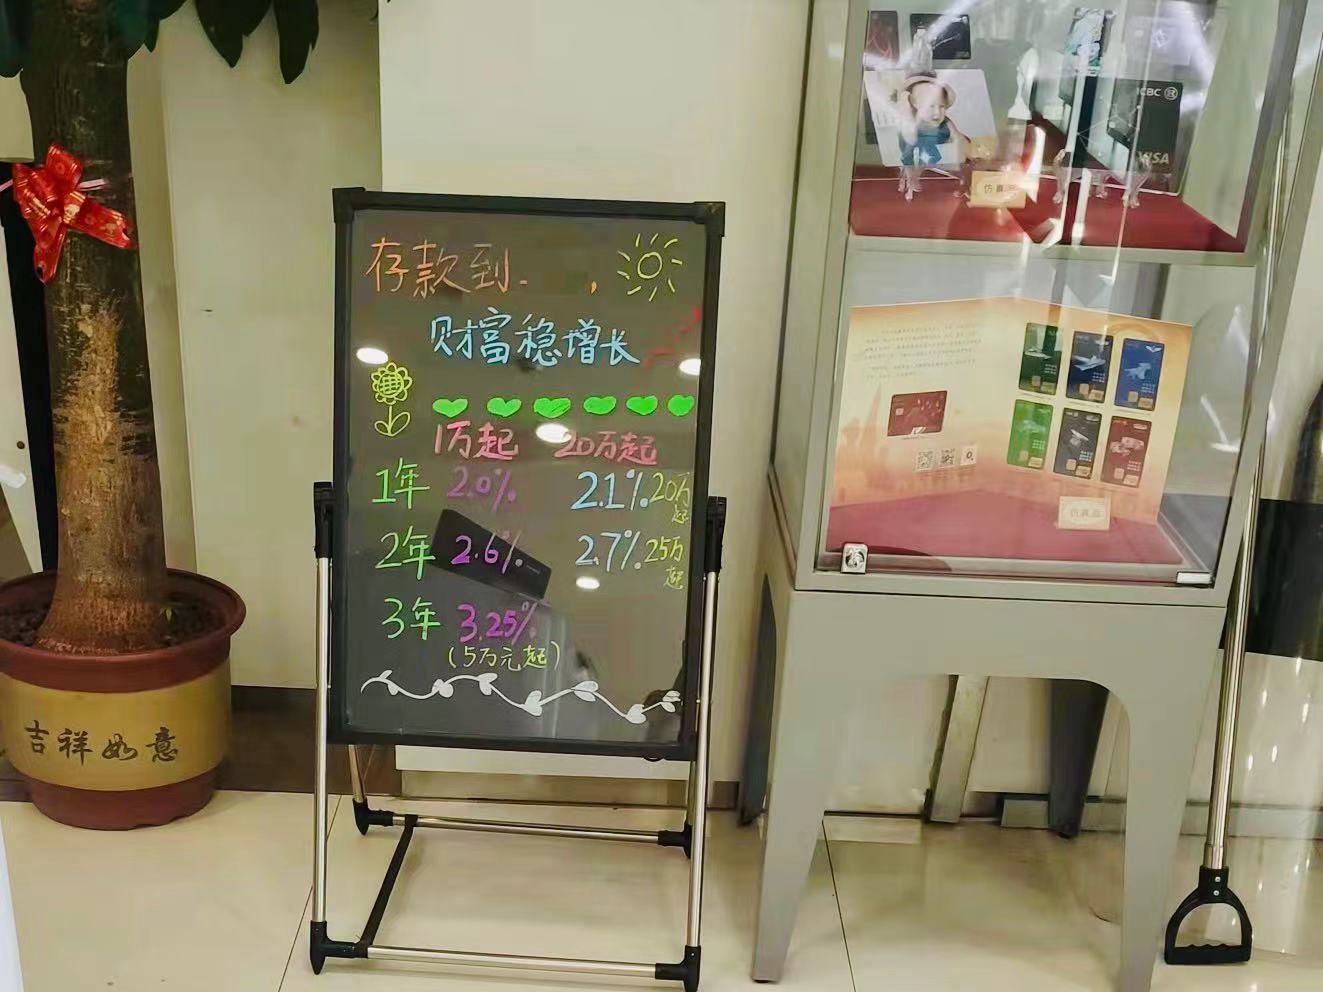 存款到
，
财富稳增长
1万起 20万起
1年 2.0% 2.1% 20万起
2年 2.6% 2.7% 25万起
3年 3.25%
（5万元起）
吉祥如意
ICBC
VISA
仿真品
仿真品